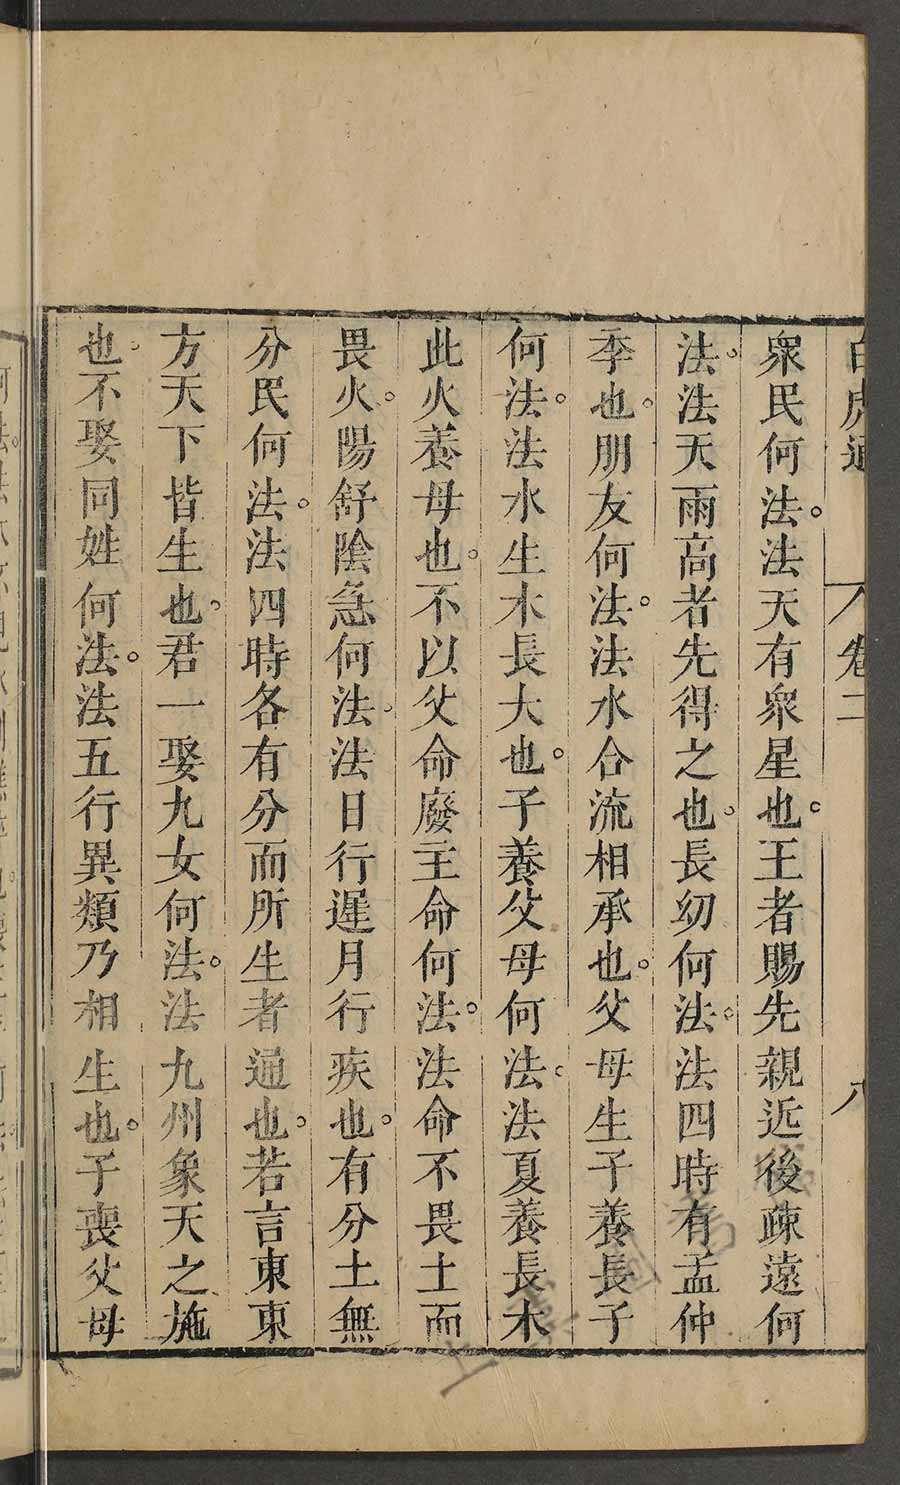 白虎通 卷二 八
衆民何法。法天有衆星也。王者賜先親近後疎遠何
法。法天雨高者先得之也。長幼何法。法四時有孟仲
季也。朋友何法。法水合流相承也。父母生子養長子
何法。法水生木長大也。子養父母何法。法夏養長木
此火養母也。不以父命廢主命何法。法命不畏土而
畏火。陽舒陰急何法。法日行遲月行疾也。有分土無
分民何法。法四時各有分而所生者通也。若言東東
方天下皆生也。君一娶九女何法。法九州象天之施
也。不娶同姓何法。法五行異類乃相生也。子喪父母